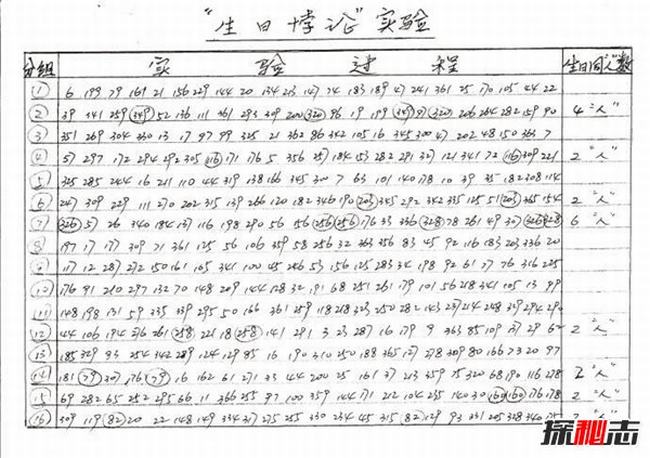 "生日悖论"实验
分组 实验过程 生日同"人"数
① 6 199 79 161 21 156 229 144 20 134 213 147 24 183 189 47 241 361 25 170 105 44 22
② 39 341 259 349 52 136 111 361 293 309 200 320 96 19 199 349 97 320 206 264 282 159 90 4"人"
③ 351 269 304 330 13 17 97 99 325 21 362 86 342 105 16 345 300 47 202 48 150 363 7
④ 57 297 172 294 292 305 116 171 176 5 356 257 184 153 282 291 307 121 341 72 116 309 221 2"人"
⑤ 325 285 244 16 211 110 44 319 138 166 345 300 7 63 101 140 178 10 39 35 182 308 114
⑥ 247 309 229 111 270 202 315 139 266 120 182 346 190 203 345 292 342 335 125 51 203 365 154 2"人"
⑦ 326 57 26 340 184 137 116 198 290 56 156 256 256 176 33 336 328 78 261 49 307 326 328 6"人"
⑧ 197 17 177 309 21 361 125 56 106 359 58 256 32 363 356 83 45 92 116 183 203 336 20
⑨ 117 12 287 272 150 161 105 341 100 45 246 53 156 125 283 34 198 92 61 77 76 316 225
⑩ 176 91 210 297 132 70 148 209 144 128 32 191 68 251 261 179 101 56 218 341 105 13 99
⑪ 148 198 131 59 335 339 295 50 166 361 259 118 218 323 250 282 143 217 214 248 329 294 290
⑫ 44 106 194 276 261 258 221 18 258 141 291 3 23 287 16 179 9 363 85 109 317 29 62 2"人"
⑬ 185 329 93 254 342 289 124 129 85 16 190 310 250 188 365 127 278 309 80 166 73 20 97
⑭ 181 79 307 176 79 16 162 61 271 33 44 200 25 161 37 213 359 75 320 68 190 116 278 2"人"
⑮ 69 282 65 252 295 66 11 366 255 97 100 359 144 171 212 104 235 140 30 160 160 176 178 2"人"
⑯ 309 119 82 20 22 148 149 334 317 275 255 330 234 45 315 82 129 93 331 205 328 340 25
探秘志